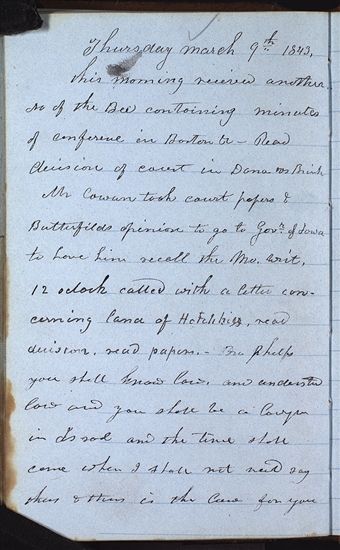 Thursday march 9th 1843.
This morning recieved another
no of the Bee containing minutes
of conference in Boston &c – Read
decision of court in Dana vs Brink
Mr Cowan took court papers &
Butterfilds opinion to go to Govr. of Iowa
to have him recall the Mo. writ.
12 oclock called with a letter con-
cerning land of Hotchkiss, read
decision. read papers. – Bro Phelps
you shall know law. and understand
law and you shall be a lawyer
in Israel and the time shall
come when I shall not need say
thus & thus is the law for you